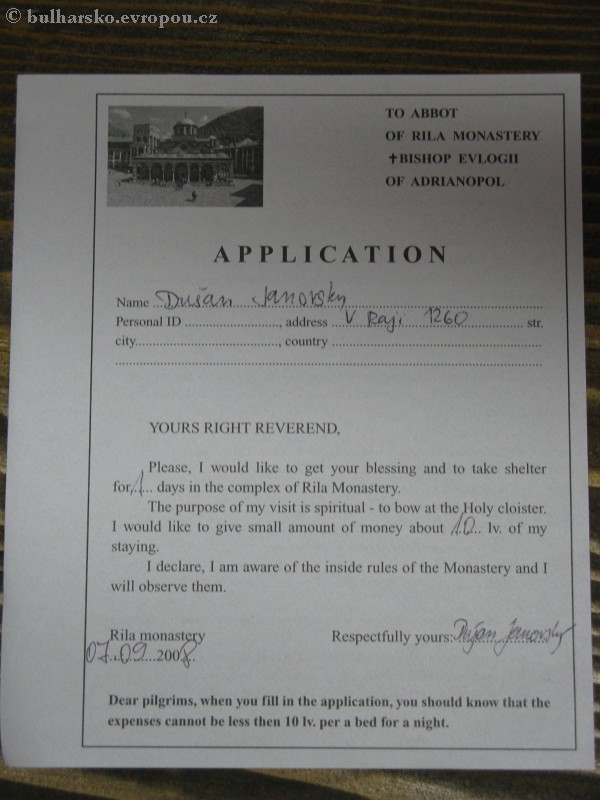 © bulharsko.evropou.cz
TO ABBOT
OF RILA MONASTERY
✝BISHOP EVLOGII
OF ADRIANOPOL
APPLICATION
Name Dušan Janovsky
Personal ID ............................, address ... V Raji 1260 ................ str.
city............................................, country ................................................................
YOURS RIGHT REVEREND,
Please, I would like to get your blessing and to take shelter
for..1... days in the complex of Rila Monastery.
The purpose of my visit is spiritual - to bow at the Holy cloister.
I would like to give small amount of money about 10... lv. of my
staying.
I declare, I am aware of the inside rules of the Monastery and I
will observe them.
Rila monastery Respectfully yours: Dušan Janovsky
07..09...2008.
Dear pilgrims, when you fill in the application, you should know that the
expenses cannot be less then 10 lv. per a bed for a night.